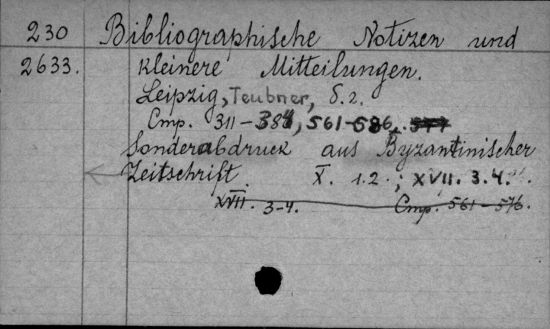 230 Bibliographische Notizen und
2633. kleinere Mitteilungen.
Leipzig, Teubner, б.г.
Стр. 311-384, 561-586.
Sonderabdruck aus Byzantinischer
Zeitschrift. X. 1.2.; XVII. 3.4.
XVII. 3-4. Стр. 561-576.